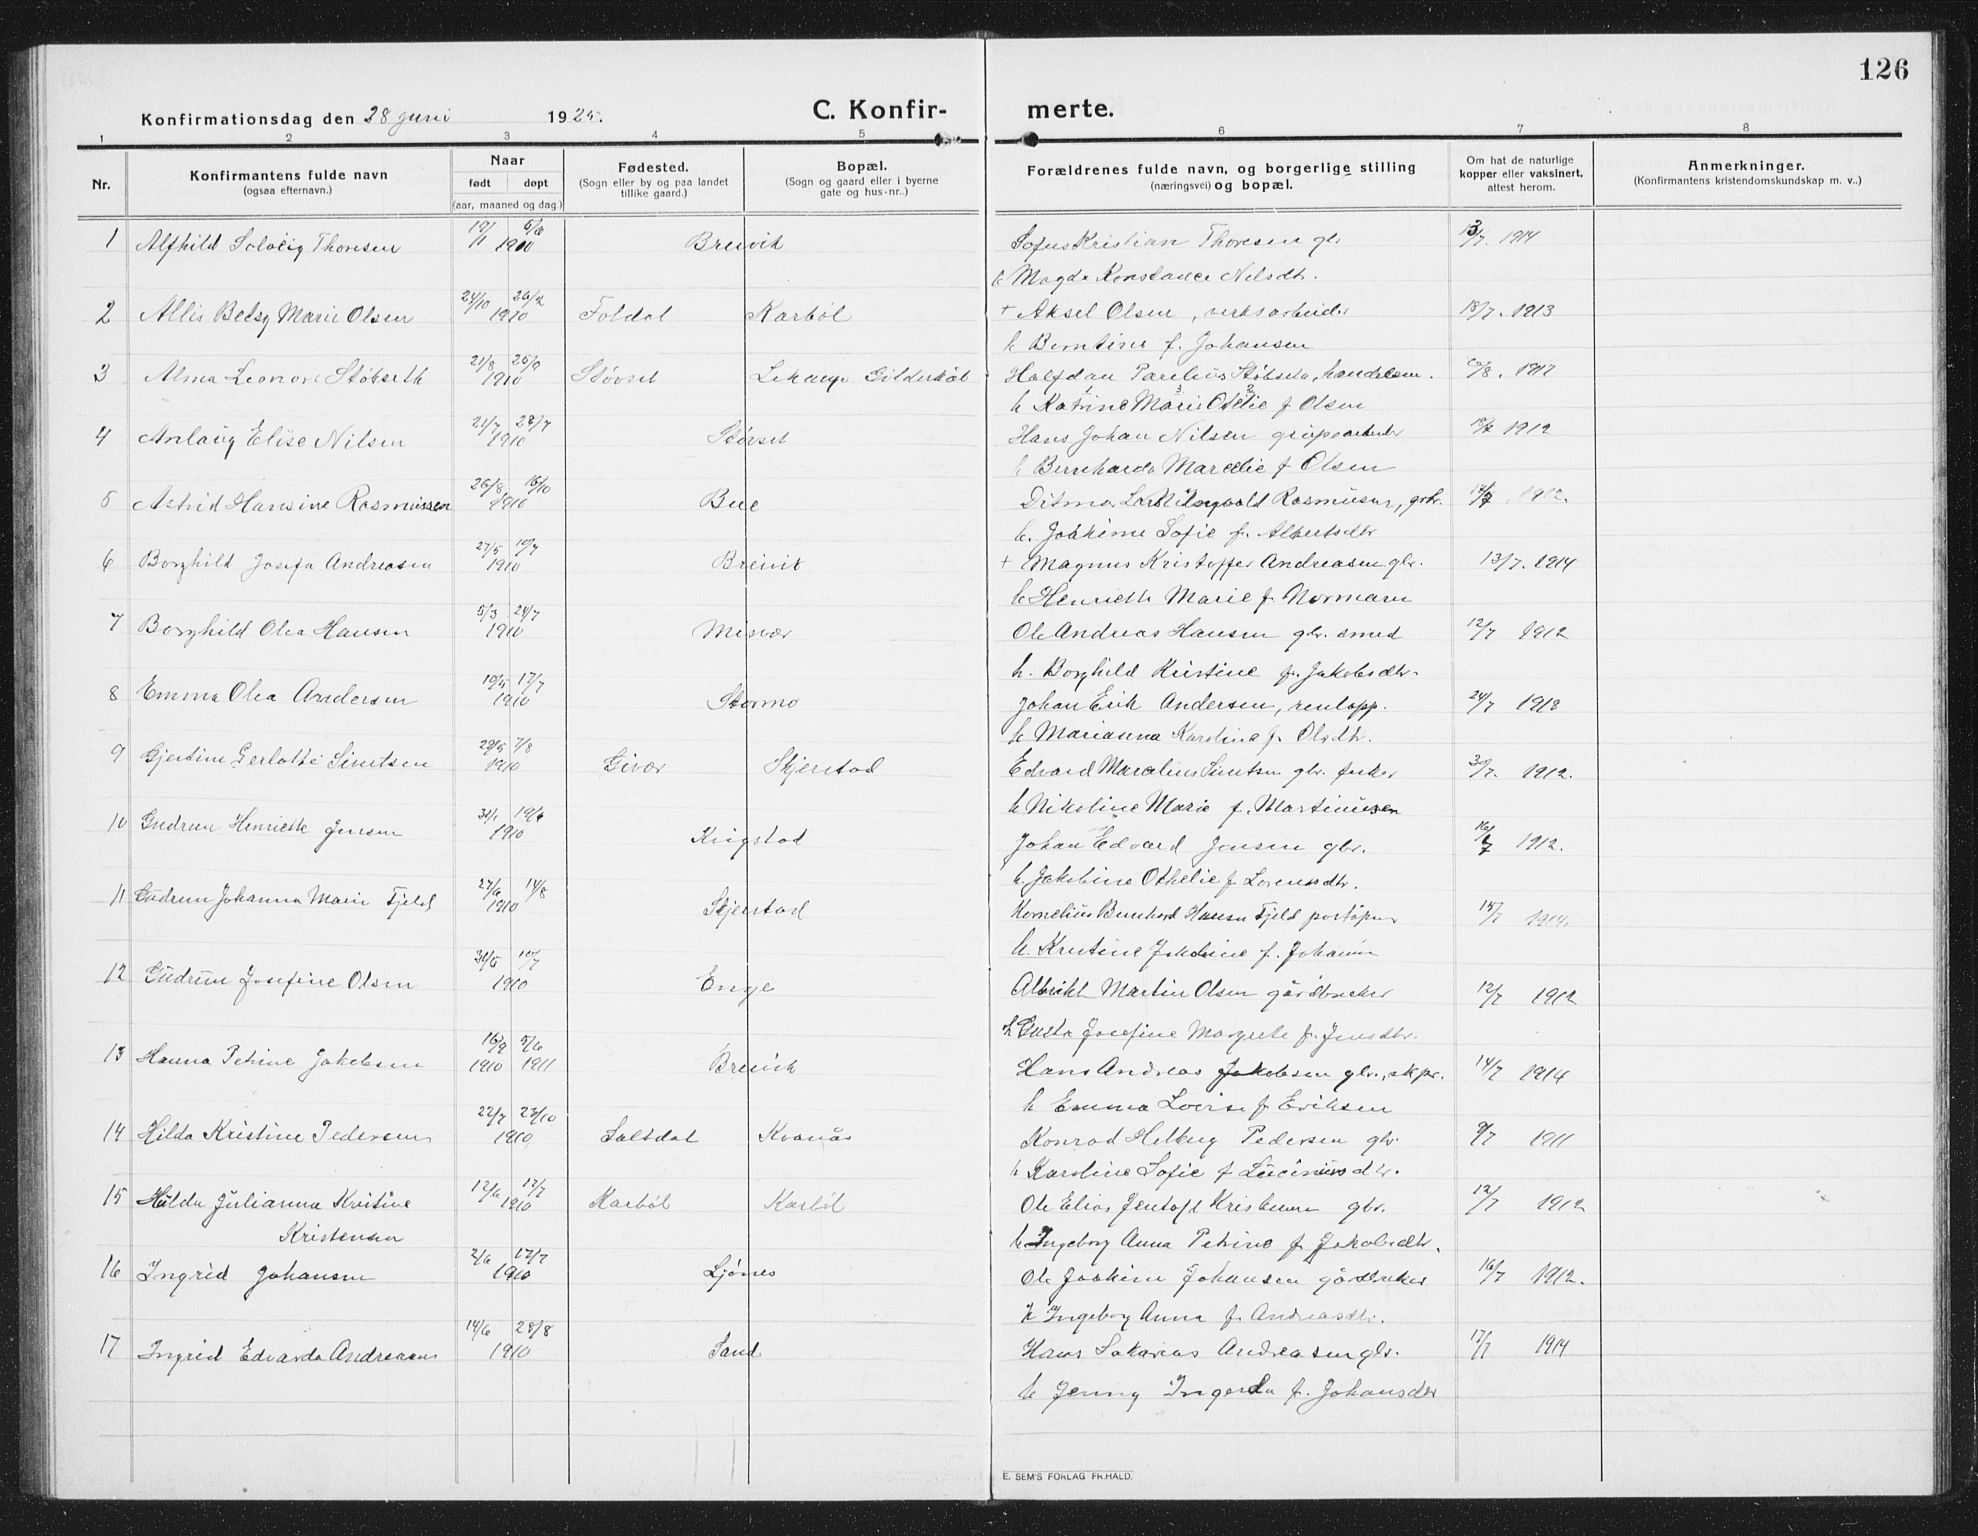 126
Konfirmationsdag den 28 juni 1925.
C. Konfirmerte.
1 2 3 4 5 6 7 8
Nr.
Konfirmantens fulde navn
(ogsaa efternavn.)
Naar
født døpt
(aar, maaned og dag.)
Fødested.
(Sogn eller by og paa landet
tillike gaard.)
Bopæl.
(Sogn og gaard eller i byerne
gate og hus-nr.)
Forældrenes fulde navn, og borgerlige stilling
(næringsvei) og bopæl.
Om hat de naturlige
kopper eller vaksinert,
attest herom.
Anmerkninger.
(Konfirmantens kristendomskundskap m. v.)
1 Alfhild Solveig Thoresen 19/1 5/6 1910 Breivik Sofus Kristian Thoresen gbr 13/7. 1914
h Magda Konstance Nelsdtr.
2 Allis Betsy Marie Olsen 24/10 26/2 1910 Foldal Karbøl + Aksel Olsen, verksarbeider 18/7. 1913
h Berntine f. Johansen
3 Alma Leonore Støbseth 21/8 25/9 1910 Støvset Lekanger Gilderskål Halfdan Parelius Støbseth, handelsm. /8. 1917
h Katrine Marie Otelie f Olsen
4 Anlaug Elise Nilsen 21/7 28/7 1910 Støvset Hans Johan Nilsen grubearbeider 1912
h Bernharda Marelie f Olsen
5 Astrid Hansine Rasmussen 26/8 16/10 1910 Bue Ditmar Ingvald Rasmussen, gbr. 17/7. 1912.
h. Joakime Sofie f. Albertsdtr
6 Borghild Josefa Andreasen 27/5 10/7 1910 Breivik + Magnus Kristoffer Andreasen gbr. 13/7. 1914
h Henriette Marie f. Normann
7 Borghild Olea Hansen 5/3 24/7 1910 Misvær Ole Andreas Hansen gbr. smed 12/7 1912
h. Borghild Kristine f. Jakobsdtr.
8 Emma Olea Andersen 19/5 17/7 1910 Stormo Johan Erik Andersen, rentopp. 24/7 1913
h Marianna Karoline f. Olsdtr.
9 Gjertine Gerlotte Sivertsen 29/5 7/8 1910 Givær Skjerstad Edvard Marelius Sivertsen gbr. fisker 30/7. 1912.
h Nikoline Marie f. Martinussen
10 Gudrun Henriette Jensen 31/1 19/6 1910 Kvigstad Johan Edvard Jensen gbr. 16/7 1912.
h. Jakobine Othelie f Lorensdtr.
11 Gudrun Johanna Marie Fjeld 27/6 14/8 1910 Skjerstad Kornelius Bernhard Hansen Fjeld postaapner 15/7 1914.
h. Kristine Jakobine f. Johansen
12 Gudrun Josefine Olsen 31/5 10/7 1910 Enge Albrikt Martin Olsen gårdbruker 12/7 1912
h Gusta Josefine Margrete f. Jensdtr.
13 Hanna Petrine Jakobsen 16/9 1910 5/6 1911 Breivik Hans Andreas Jakobsen gbr., skpr. 14/7 1914
h Emma Lovise f Eriksen
14 Hilda Kristine Pedersen 22/7 23/10 1910 Saltdal Kvanås Konrad Helberg Pedersen gbr. 9/7 1911
h Karoline Sofie f Lucinusdtr.
15 Hilda Julianna Kristine 12/6 17/7 1910 Karbøl Karbøl Ole Elias Jentoft Kristensen gbr. 12/7 1912
Kristensen
h Ingeborg Anna Petrine f Jakobsdtr.
16 Ingrid Johansen 2/6 17/7 1910 Ljønes Ole Joakim Johansen gårdbruker 16/7 1912.
h Ingeborg Anna f. Andreasdtr.
17 Ingrid Edvarda Andreasen 14/6 28/8 1910 Sand Hans Sakarias Andreasen gbr. 17/7 1914
h Jenny Ingerda f. Johansdtr
E. SEM'S FORLAG FR.HALD.